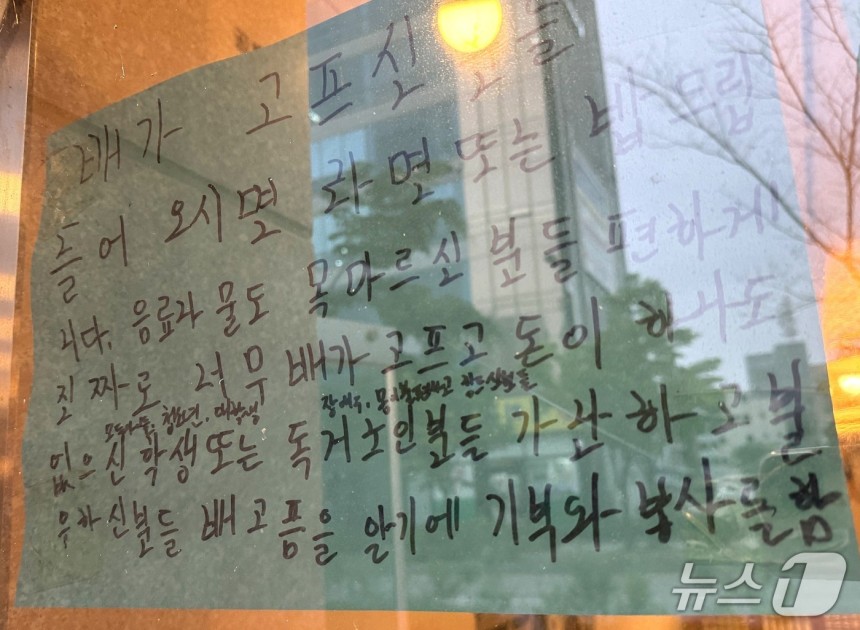 배가 고프신 분들
들어 오시면 라면 또는 밥 드립
니다. 음료과 물도 목마르신 분들 편하게
진짜로 너무 배가 고프고 돈이 하나도
청소년, 대학생 장애우, 몸이 힘드신분들
없으신 학생 또는 독거노인분들 가난하고 불
우하신분들 배고픔을 알기에 기부와 봉사를 함
뉴스1